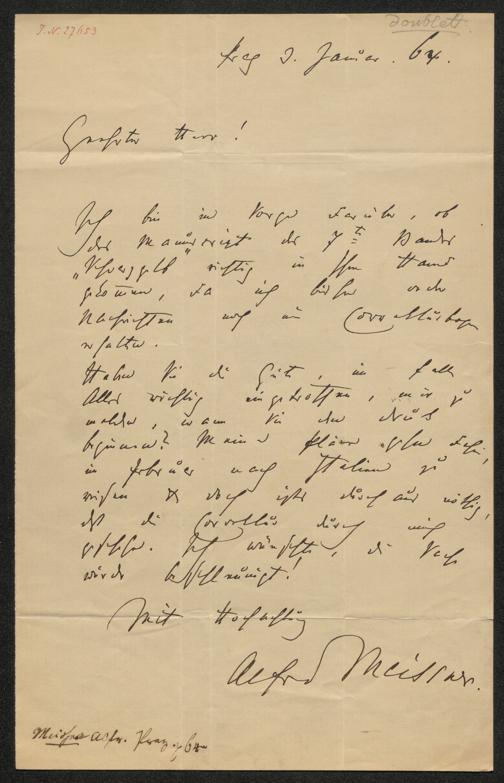 J. N. 27653
Doublett.
Prag 3. Januar. 64.
Geehrter Herr!
Ich bin in Sorge darüber, ob
das Manuscript des 7ten Bandes
„Schwarzgelb" richtig in Ihre Hand
gekommen, da ich bisher weder
Nachrichten noch ein Correcturbogen
erhalten.
Haben Sie die Güte, im Falle
Alles richtig eingetroffen, mir zu
melden, wann Sie den Druck
beginnen? Meine Pläne gehen dahin,
im Februar nach Italien zu
reisen & doch ist's durchaus nöthig,
daß die Correctur durch mich
geschehe. Ich wünschte, die Sache
würde beschleunigt!
Mit Hochachtung
Alfred Meissner.
Meissner Alfr. Prag 64